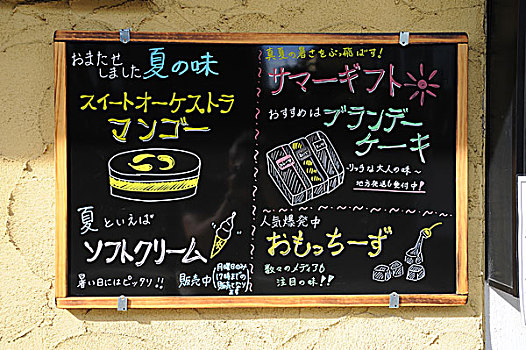 おまたせ
しました 夏の味
スイートオーケストラ
マンゴー
夏といえば
ソフトクリーム
暑い日にはピッタリ!!
販売中
月曜日のみ
17時までの
販売となり
ます
真夏の暑さをぶっ飛ばす!
サマーギフト
おすすめは
ブランデー
ケーキ
〜リッチな大人の味〜
地方発送も受付中!!
人気爆発中
おもっちーず
数々のメディアも
注目の味!!